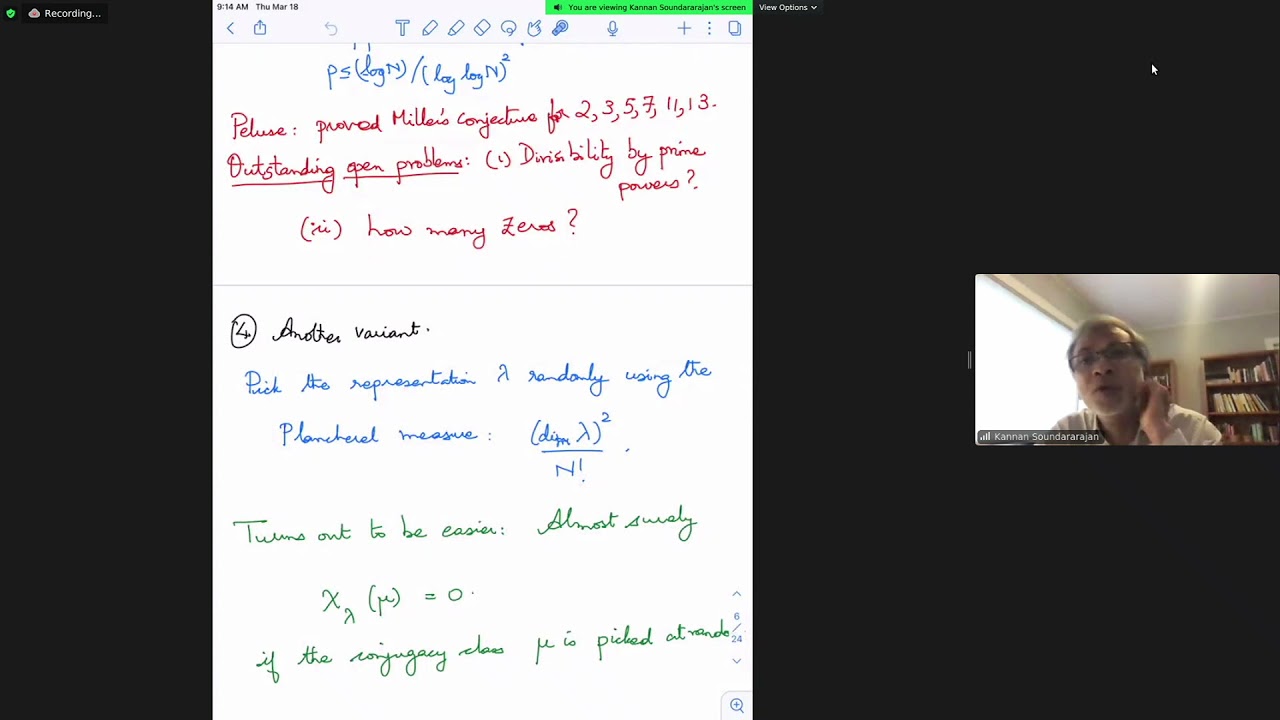 Recording...
9:14 AM Thu Mar 18
You are viewing Kannan Soundararajan's screen
View Options
p ≤ (log N) / (log log N)²
Peluse: proved Miller's conjecture for 2, 3, 5, 7, 11, 13.
Outstanding open problems: (i) Divisibility by prime
powers?
(ii) how many zeros?
④ Another variant.
Pick the representation λ randomly using the
Plancherel measure: (dim λ)² / N! .
Turns out to be easier: Almost surely
χ_λ (μ) = 0.
if the conjugacy class μ is picked at rando
6
/
24
Kannan Soundararajan